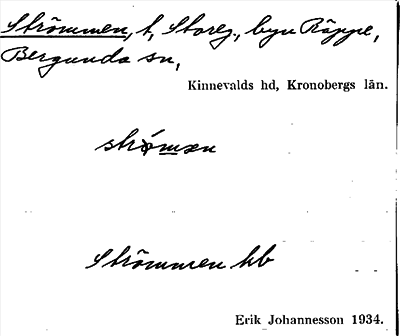 Strömmen, t, Storeg., byn Räppe,
Bergunda sn,
Kinnevalds hd, Kronobergs län.
strömæn
Strömmen hb
Erik Johannesson 1934.